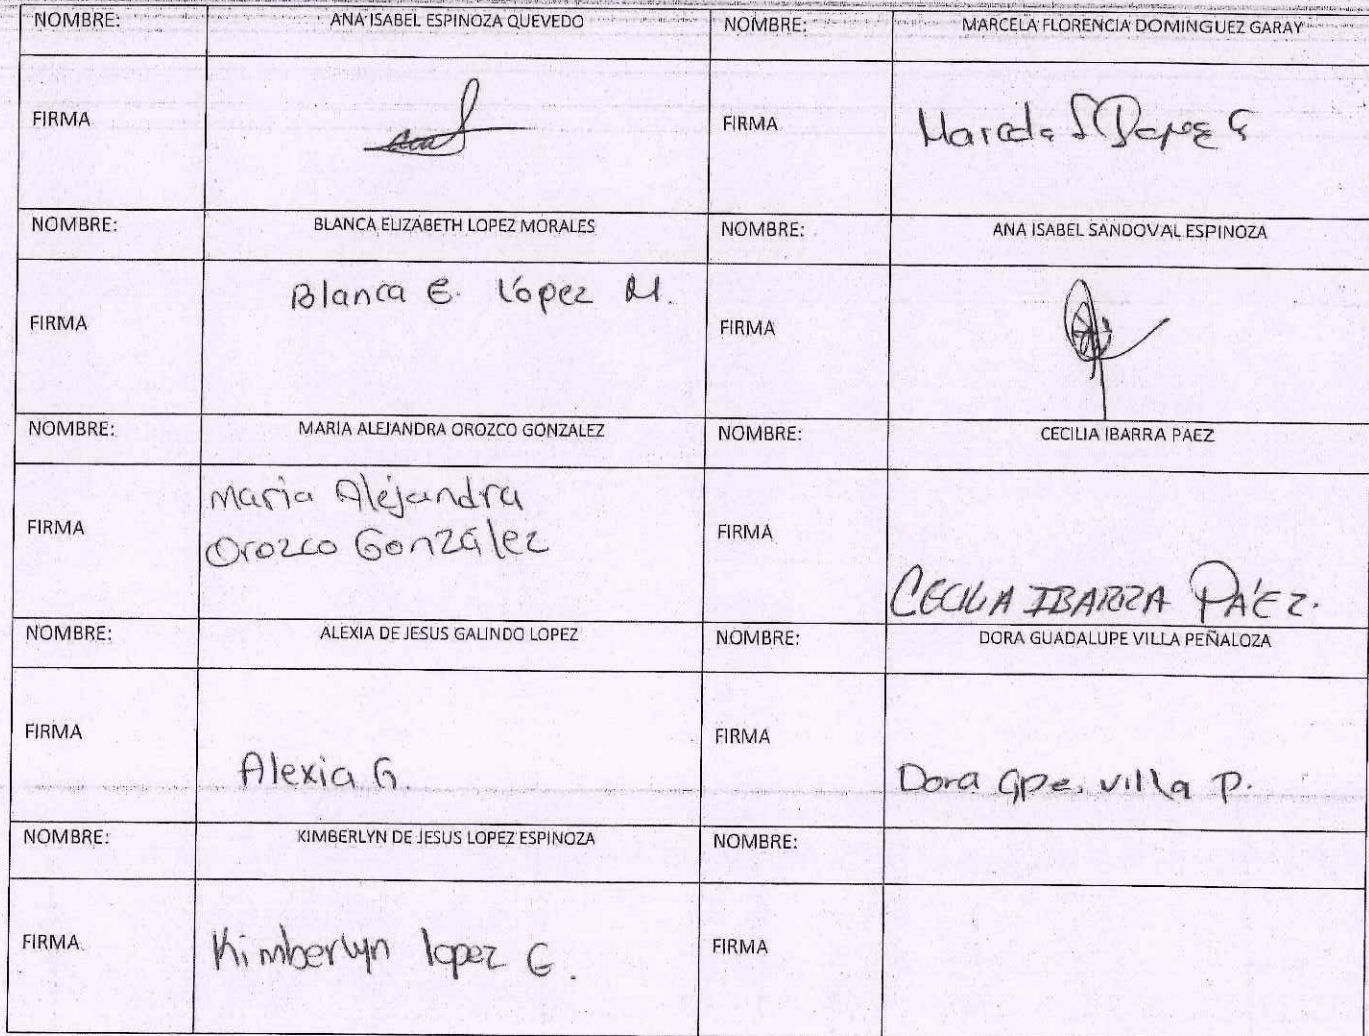 NOMBRE: ANA ISABEL ESPINOZA QUEVEDO NOMBRE: MARCELA FLORENCIA DOMINGUEZ GARAY
FIRMA FIRMA Marcela
NOMBRE: BLANCA ELIZABETH LOPEZ MORALES NOMBRE: ANA ISABEL SANDOVAL ESPINOZA
FIRMA Blanca E. López M. FIRMA
NOMBRE: MARIA ALEJANDRA OROZCO GONZALEZ NOMBRE: CECILIA IBARRA PAEZ
FIRMA Maria Alejandra
Orozco González FIRMA CECILIA IBARRA PÁEZ.
NOMBRE: ALEXIA DE JESUS GALINDO LOPEZ NOMBRE: DORA GUADALUPE VILLA PEÑALOZA
FIRMA Alexia G. FIRMA Dora Gpe. Villa P.
NOMBRE: KIMBERLYN DE JESUS LOPEZ ESPINOZA NOMBRE:
FIRMA Kimberlyn lopez E. FIRMA